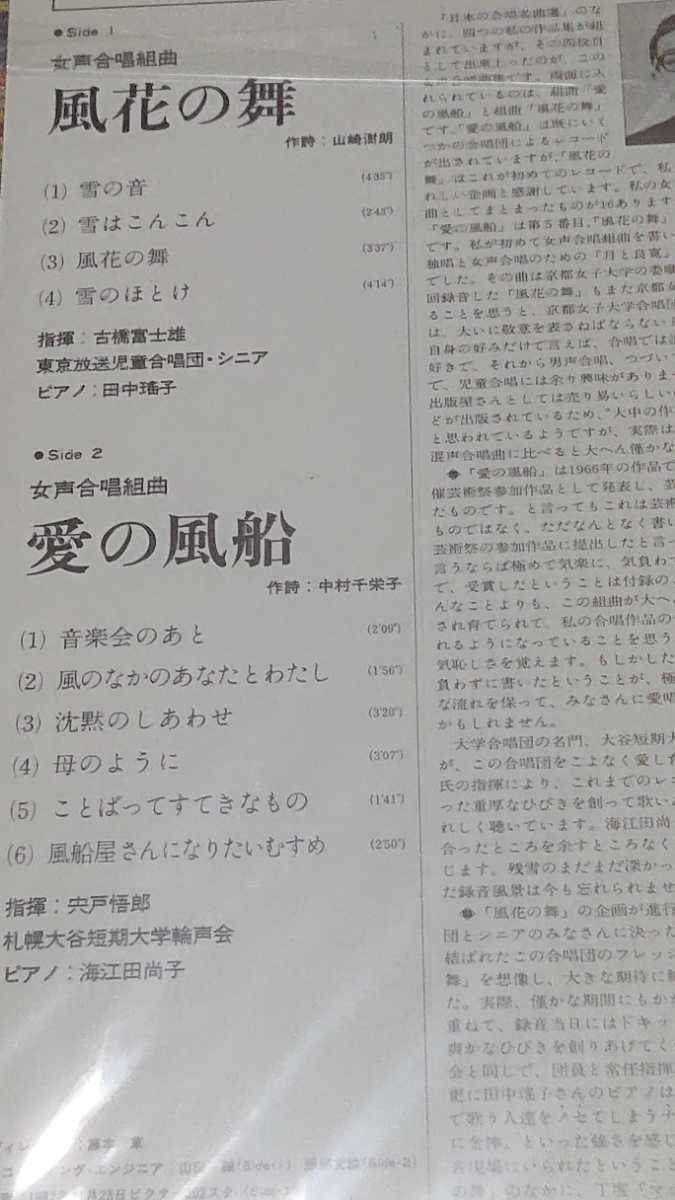 ●Side 1
女声合唱組曲
風花の舞
作詩：山崎澍朗
(1) 雪の音 (4'35")
(2) 雪はこんこん (2'43")
(3) 風花の舞 (3'37")
(4) 雪のほとけ (4'14")
指揮：古橋富士雄
東京放送児童合唱団・シニア
ピアノ：田中瑤子
●Side 2
女声合唱組曲
愛の風船
作詩：中村千栄子
(1) 音楽会のあと (2'09")
(2) 風のなかのあなたとわたし (1'56")
(3) 沈黙のしあわせ (3'20")
(4) 母のように (3'07")
(5) ことばってすてきなもの (1'41")
(6) 風船屋さんになりたいむすめ (2'50")
指揮：宍戸悟郎
札幌大谷短期大学輪声会
ピアノ：海江田尚子
「日本の合唱名曲選」のな
かに、四つの私の作品集が組
まれていますが、その四枚目
として出来上ったのが、この
れられているのは、組曲「愛
の風船」と組曲「風花の舞」
です。「愛の風船」は既にいく
つかの合唱団によるレコード
が出されていますが、「風花の
舞」はこれが初めてのレコードで、私
れしい企画と感謝しています。私の女
曲としてまとまったものが16あります
「愛の風船」は第5番目、「風花の舞」
です。私が初めて女声合唱組曲を書い
独唱と女声合唱のための「月と良寛」
でした。その曲は京都女子大学の委嘱
回録音した「風花の舞」もまた京都女
ることを思うと、京都女子大学合唱団
は、大いに敬意を表さねばならない
自身の好みだけで言えば、合唱では混
好きで、それから男声合唱、つづいて
で、児童合唱には余り興味がありま
出版屋さんとしては売り易いらしい
どが出版されているため、"大中の作
と思われているようですが、実際は
混声合唱曲に比べると大へん僅かな
●「愛の風船」は1966年の作品で
催芸術祭参加作品として発表し、芸
たものです。と言ってもこれは芸術
ものではなく、ただなんとなく書い
芸術祭の参加作品に提出したと言っ
言うならば極めて気楽に、気負わ
で、受賞したということは付録の
んなことよりも、この組曲が大へ
され育てられて、私の合唱作品の
れるようになっていることを思う
気恥しさを覚えます。もしかした
負わずに書いたということが、極
な流れを保って、みなさんに愛唱
かもしれません。
大学合唱団の名門、大谷短期大
が、この合唱団をこよなく愛し育
氏の指揮により、これまでのレコ
った重厚なひびきを創って歌い
れしく聴いています。海江田尚
合ったところを余すところなく
じます。残雪のまだまだ深かっ
た録音風景は今も忘れられませ
●「風花の舞」の企画が進行
団とシニアのみなさんに決った
結ばれたこの合唱団のフレッシ
舞」を想像し、大きな期待に
た。実際、僅かな期間にもか
重ねて、録音当日にはドキッ
爽かなひびきを創りあげてく
会と同じで、団員と常任指揮
更に田中瑤子さんのピアノは
で歌う人達をノセてしまうナ
に金棒、といった強さを感じ
音現場にいられたということ